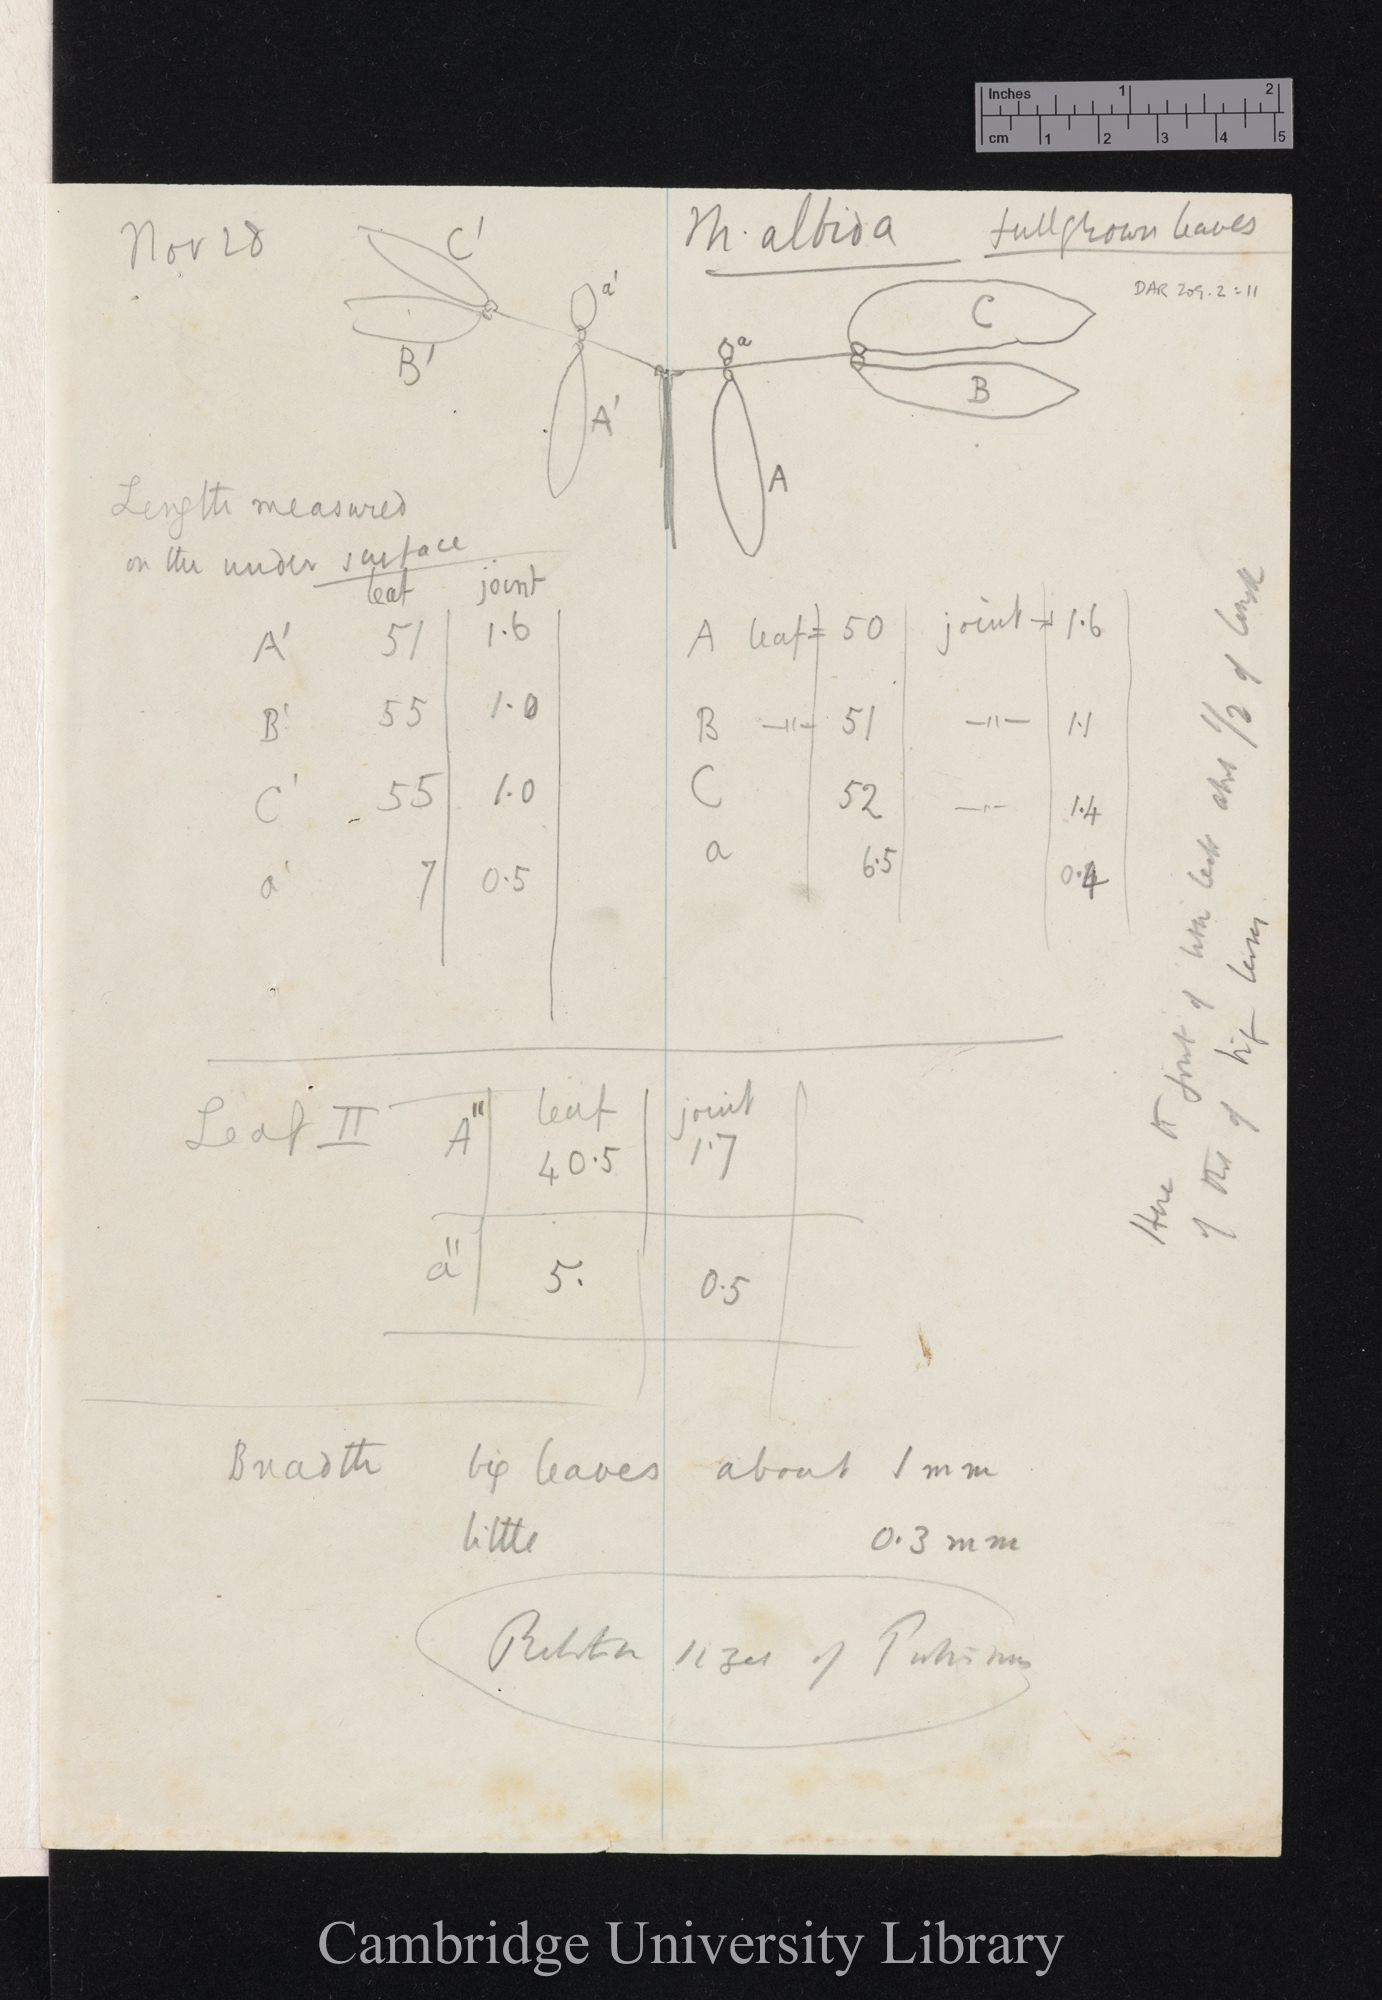 Inches 1 2
cm 1 2 3 4 5
Nov 28
M. albida fullgrown leaves
DAR 209.2:11
C' a' C
B' a B
A' A
Length measured
on the under surface
leaf joint
A' 51 1.6
B' 55 1.0
C' 55 1.0
a' 7 0.5
A leaf = 50 joint = 1.6
B —"— 51 —"— 1.1
C 52 —"— 1.4
a 6.5 0.4
Here the joint of little leaf about 1/3 of length
of that of big leaves
Leaf II leaf joint
A" 40.5 1.7
a" 5. 0.5
Breadth big leaves about 1 mm
little 0.3 mm
Relative sizes of Pulvinus
Cambridge University Library